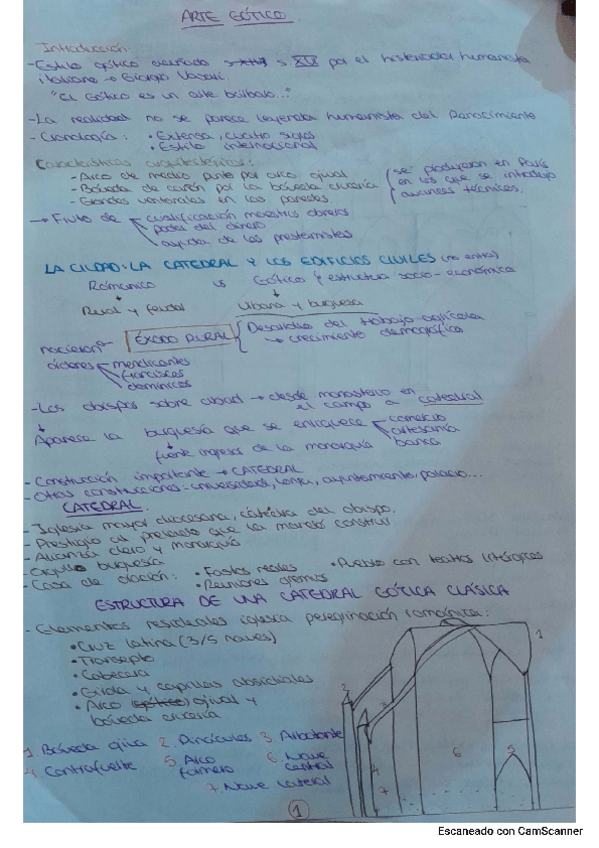 ARTE GÓTICO.
Introducción.
- Estilo gótico s XVI por el historiador humanista
italiano → Giorgio Vasari.
"El Gótico es un arte bárbaro..."
- La realidad no se parece leyenda humanista del Renacimiento
- Cronología: • Extensa, cuatro siglos
• Estilo internacional
Características arquitectónicas:
- Arco de medio punto por arco ojival
- Bóveda de cañón por la bóveda crucería
- Grandes ventanales en las paredes.
se produjeron en París
en los que se introdujo
avances técnicos.
→ Fruto de cualificación maestros obreros
poder del dinero
ayuda de los prestamistas
LA CIUDAD: LA CATEDRAL Y LOS EDIFICIOS CIVILES (no entra)
Románico vs Gótico → estructura socio-económica
Rural y feudal Urbana y burguesa
ÉXODO RURAL Desarrollo del trabajo agrícola
→ crecimiento demográfico
nacieron
órdenes mendicantes
franciscos
dominicos
- Los obispos sobre ciudad → desde monasterio en
el campo a catedral
Aparece la burguesía que se enriquece comercio
artesanía
banca
fuente ingresos de la monarquía
- Construcción importante → CATEDRAL
- Otras construcciones: universidades, lonja, ayuntamiento, palacio...
CATEDRAL.
- Iglesia mayor diocesana, cátedra del obispo.
- Prestigio al prelado que la manda construir
- Alianza clero y monarquía
- Orgullo burguesía
- Casa de oración: • Fastos reales • Pueblo con teatros litúrgicos
• Reuniones gremios
ESTRUCTURA DE UNA CATEDRAL GÓTICA CLÁSICA
- Elementos iglesia peregrinación románica:
• Cruz latina (3/5 naves)
• Transepto
• Cabecera
• Girola y capillas absidiales
• Arco (gótico) ojival y
bóveda crucería
1. Bóveda ojiva 2. Pináculos 3. Arbotante
4. Contrafuerte 5. Arco formero 6. Nave central
7. Nave lateral
1
2
3
4
5
6
7
1
Escaneado con CamScanner